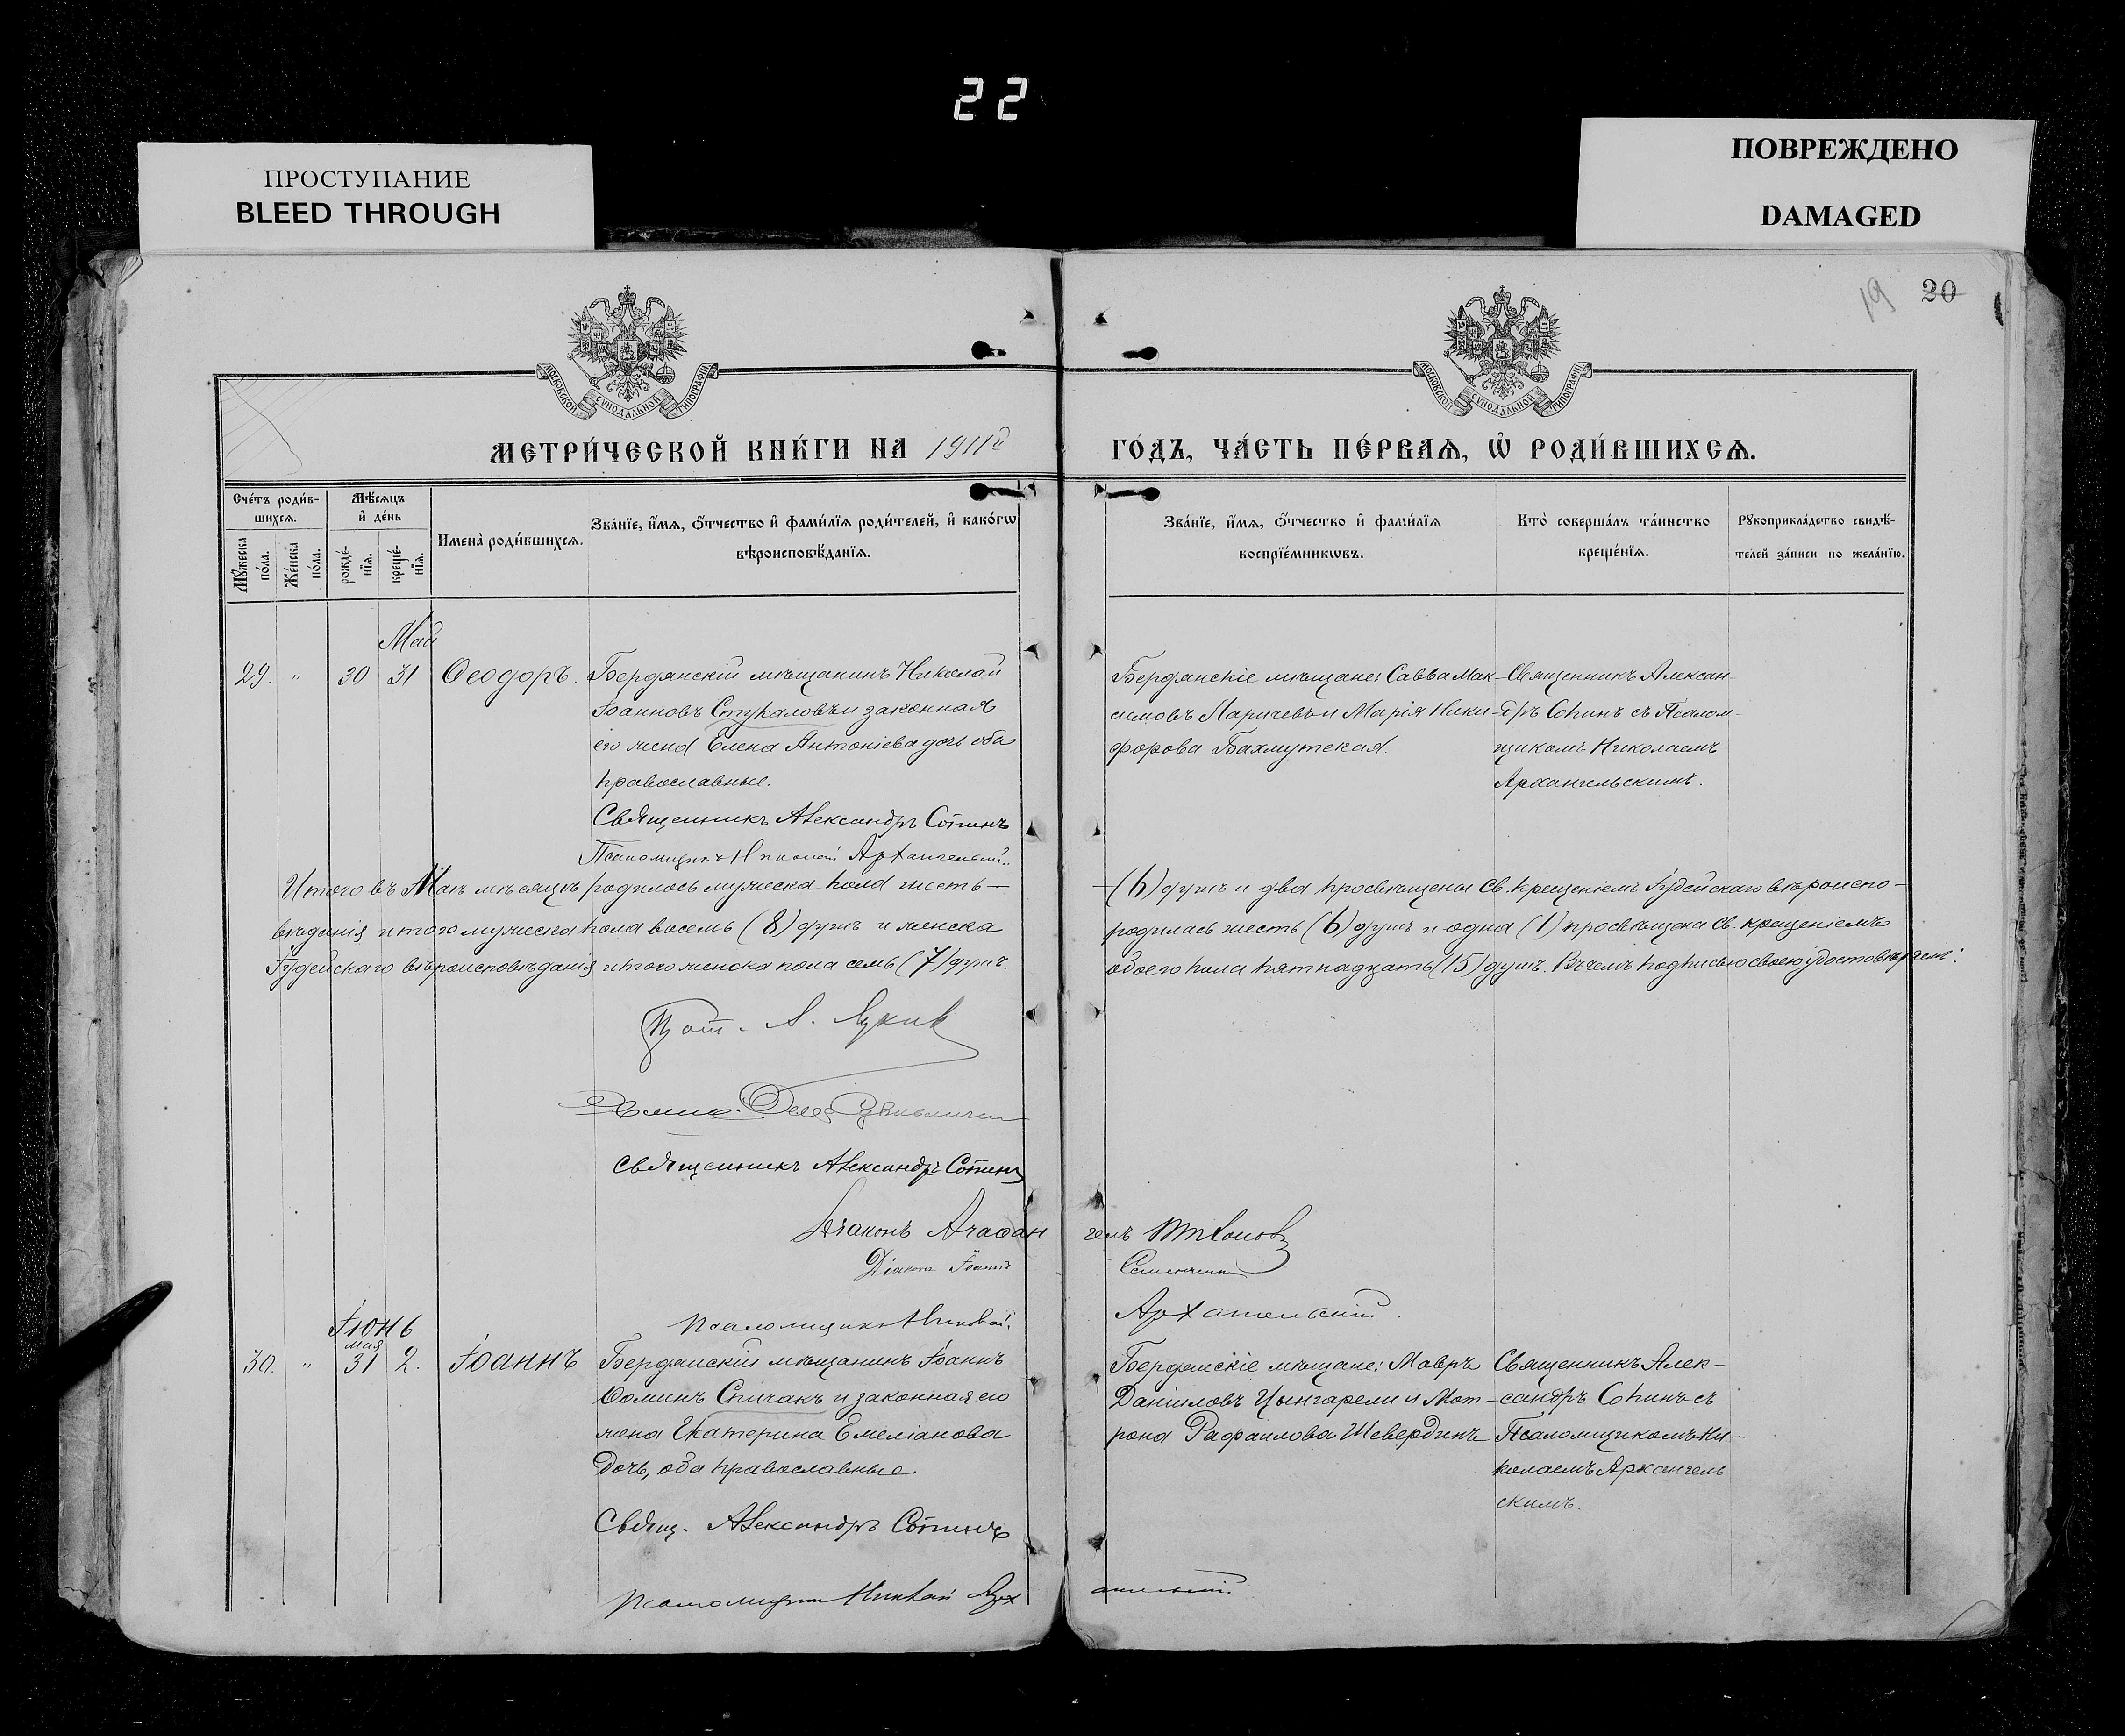 22
ПРОСТУПАНИЕ
BLEED THROUGH
ПОВРЕЖДЕНО
DAMAGED
19 20
МОСКОВСКОЙ СѴНОДАЛЬНОЙ ТИПОГРАФІИ
МОСКОВСКОЙ СѴНОДАЛЬНОЙ ТИПОГРАФІИ
МЕТРИ́ЧЕСКОЙ КНИ́ГИ НА 1911й
ГО́ДЪ, ЧА́СТЬ ПЕ́РВАѦ, Ѽ РОДИ́ВШИХСѦ.
Сче́тъ роди́в-
шихсѧ.
Мѣ́сѧцъ
и҆ де́нь
Мꙋ́жеска по́ла.
Же́нска по́ла.
рожде́-
нїѧ.
креще́-
нїѧ.
Имена̀ роди́вшихсѧ.
Зва́нїе, и҆́мѧ, ѻ҆́тчество и҆ фами́лїѧ роди́телей, и҆ како́гѡ
вѣроисповѣ́данїѧ.
Зва́нїе, и҆́мѧ, ѻ҆́тчество и҆ фами́лїѧ
воспрїе́мникѡвъ.
Кто̀ соверша́лъ та́инство
креще́нїѧ.
Рꙋкоприкла́дство свидѣ́-
телей за́писи по жела́нїю.
Май
29. " 30 31 Ѳеодоръ.
Бердянскій мѣщанинъ Николай
Іоанновъ Стукаловъ и законная
его жена Елена Антоніева дочь оба
православные.
Священникъ Александръ Сопинъ
Псаломщикъ Николай Архангельскій.
Бердянскіе мѣщане: Савва Мак-
симовъ Ларичевъ и Марія Ники-
форова Бахмутская.
Священникъ Алексан-
дръ Сопинъ съ Псалом-
щикомъ Николаемъ
Архангельскимъ.
Итого въ Маѣ мѣсяцѣ родилось мужеска пола шесть — (6) душъ и два просвѣщены Св. крещеніемъ Іудейскаго вѣроиспо-
вѣданія итого мужеска пола восемь (8) душъ и женска родилась шесть (6) душъ и одна (1) просвѣщена Св. крещеніемъ
Іудейскаго вѣроисповѣданія итого женска пола семь (7) душъ. обоего пола пятнадцать (15) душъ. Въ чемъ подписью своею удостовѣряемъ:
Прот. А.
Священникъ Александръ Сопинъ
Діаконъ Агаѳан гелъ Тихонов
Діаконъ Іоаннъ
Псаломщикъ Николай Архангельскій.
Іюнь
мая
30. " 31 2. Іоаннъ
Бердянскій мѣщанинъ Іоаннъ
Ѳоминъ Спичакъ и законная его
жена Екатерина Емеліанова
дочь, оба православные.
Свящ. Александръ Сопинъ
Псаломщикъ Николай Арх ангельскій.
Бердянскіе мѣщане: Мавръ
Даніиловъ Цынгарели и Мат-
рона Рафаилова Шевердинъ
Священникъ Алек-
сандръ Сопинъ съ
Псаломщикомъ Ни-
колаемъ Архангель
скимъ.